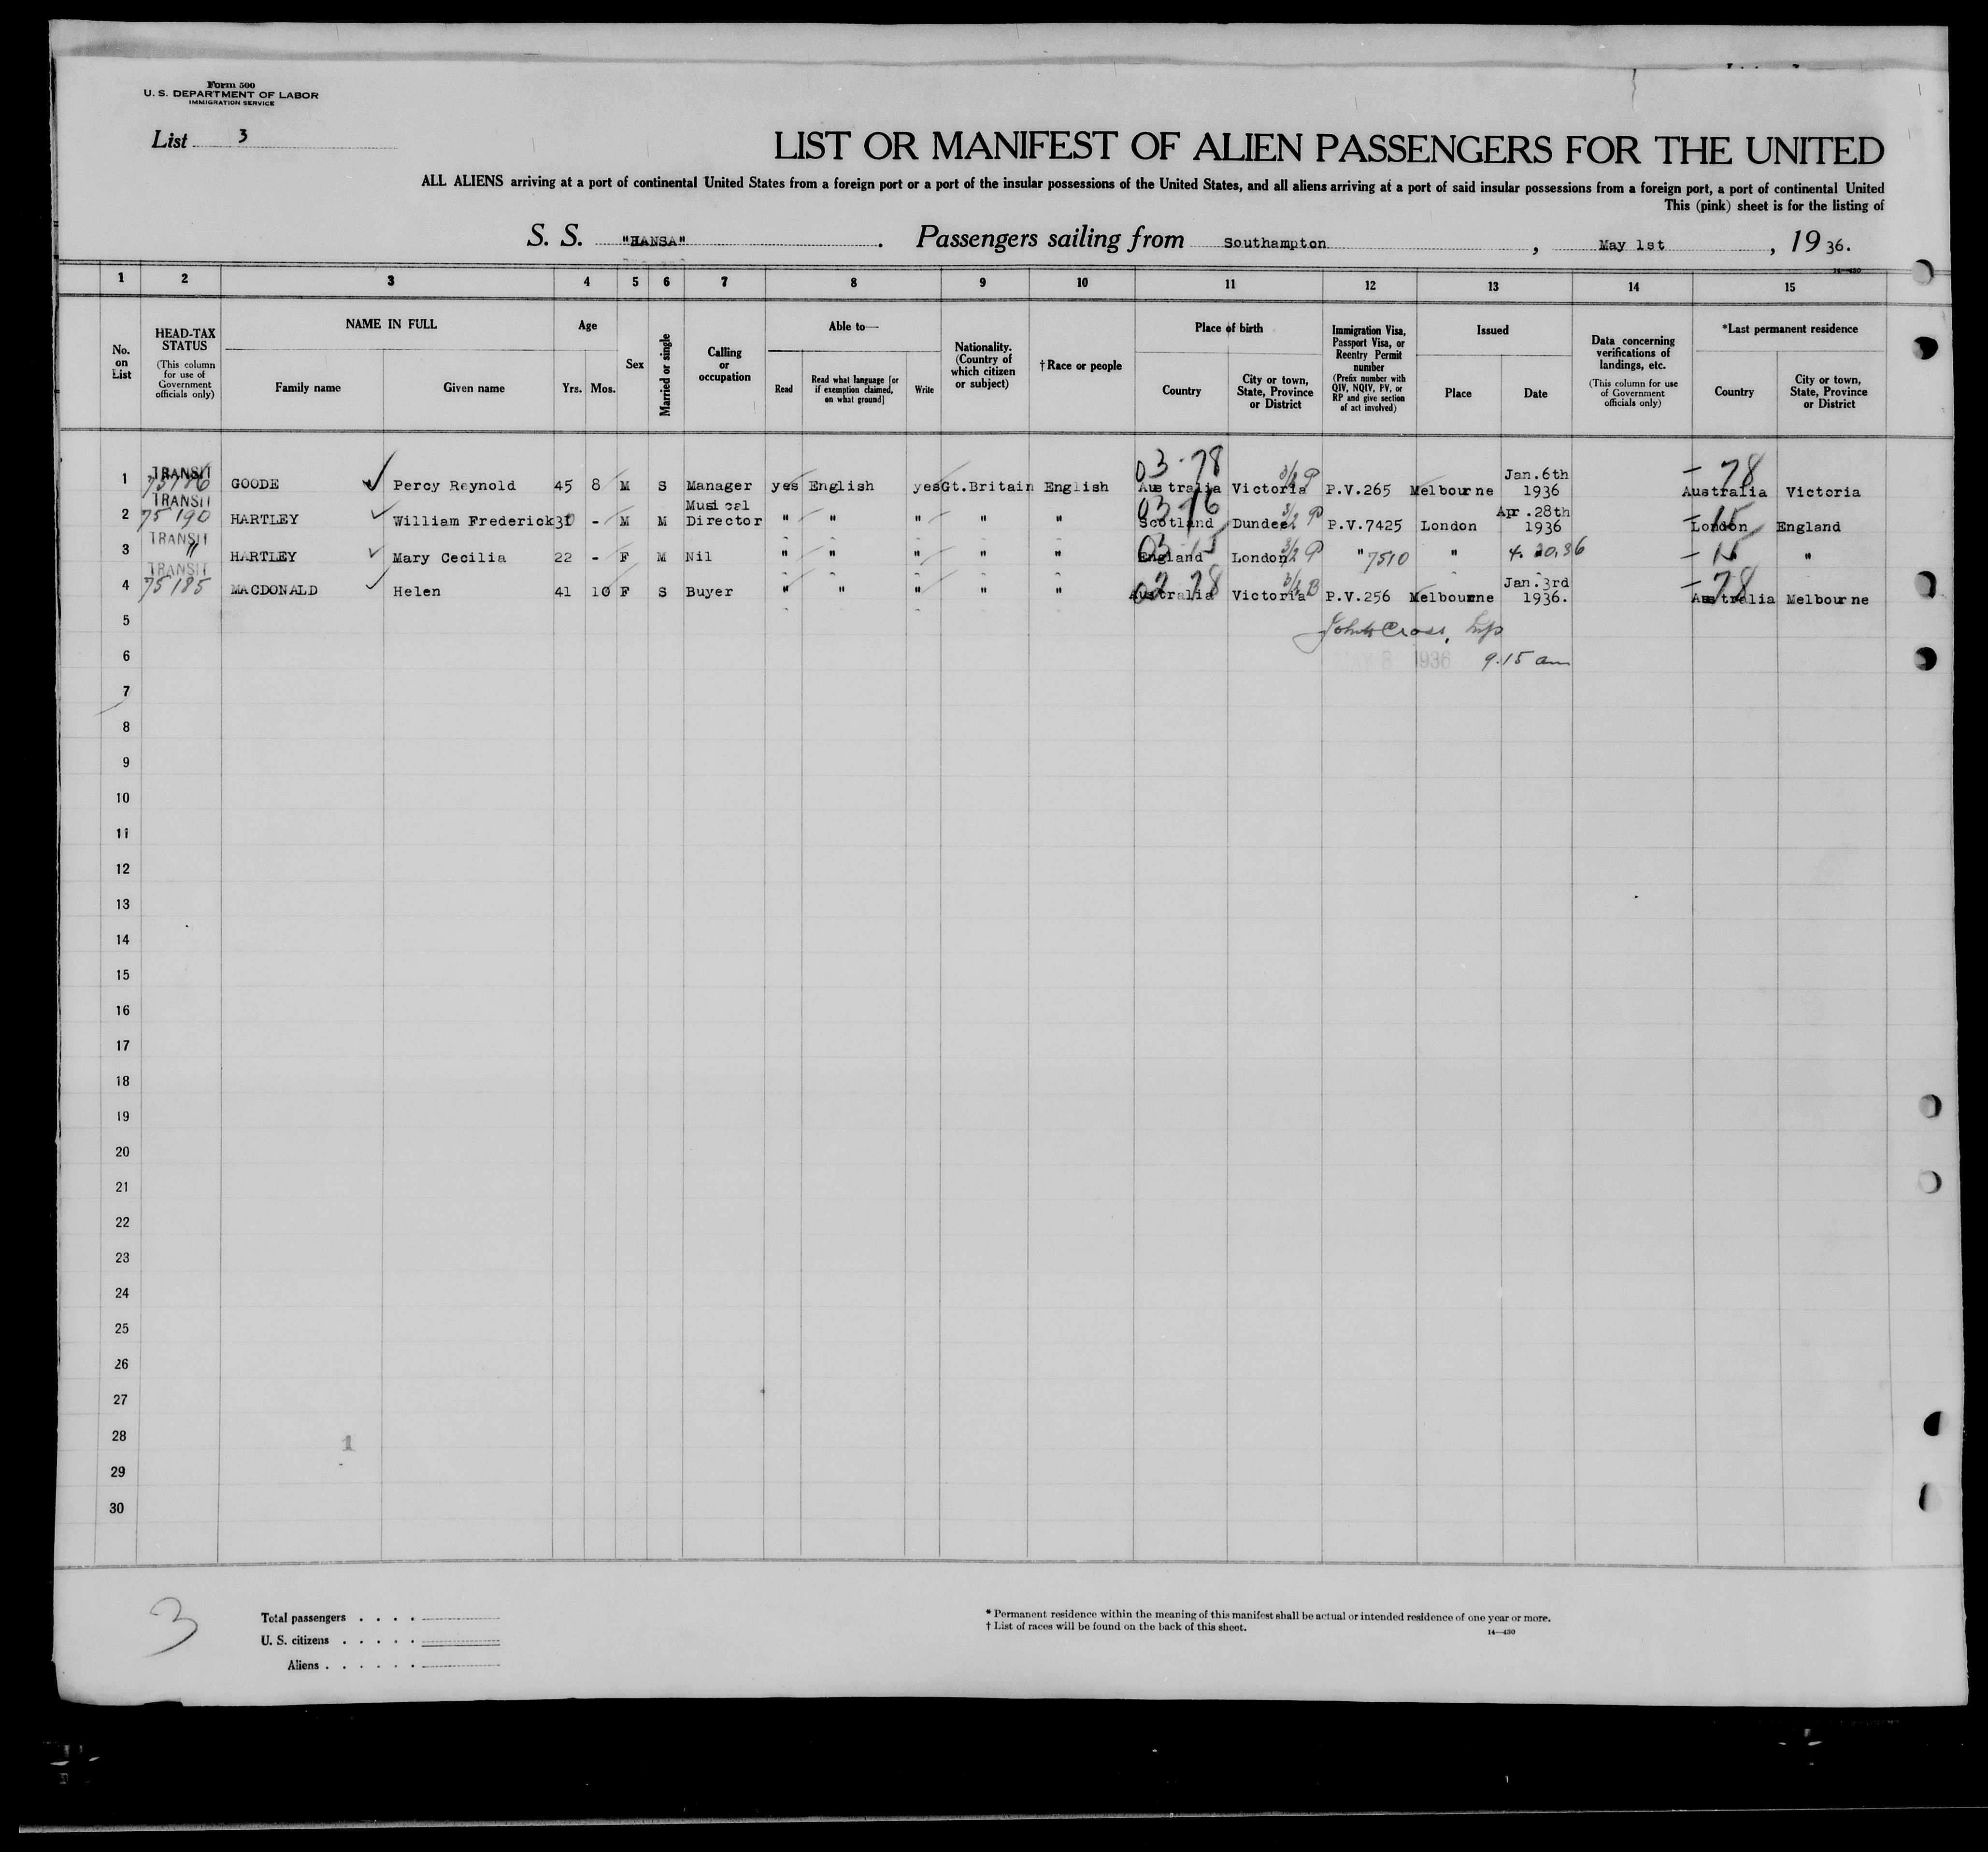 Form 500
U. S. DEPARTMENT OF LABOR
IMMIGRATION SERVICE
List 3
LIST OR MANIFEST OF ALIEN PASSENGERS FOR THE UNITED
ALL ALIENS arriving at a port of continental United States from a foreign port or a port of the insular possessions of the United States, and all aliens arriving at a port of said insular possessions from a foreign port, a port of continental United
This (pink) sheet is for the listing of
S. S. "HANSA". Passengers sailing from Southampton, May 1st, 1936.
14—430
1 2 3 4 5 6 7 8 9 10 11 12 13 14 15
No. on List
HEAD-TAX STATUS (This column for use of Government officials only)
NAME IN FULL Family name Given name
Age Yrs. Mos.
Sex
Married or single
Calling or occupation
Able to— Read Read what language [or if exemption claimed, on what ground] Write
Nationality. (Country of which citizen or subject)
†Race or people
Place of birth Country City or town, State, Province or District
Immigration Visa, Passport Visa, or Reentry Permit number (Prefix number with QIV, NQIV, PV, or RP and give section of act involved)
Issued Place Date
Data concerning verifications of landings, etc. (This column for use of Government officials only)
*Last permanent residence Country City or town, State, Province or District
1 TRANSIT 75186 GOODE Percy Reynold 45 8 M S Manager yes English yes Gt.Britain English 03-78 Australia Victoria 3/2 P P.V.265 Melbourne Jan.6th 1936 - 78 Australia Victoria
2 TRANSIT 75190 HARTLEY William Frederick M M Musical Director " " " " " 03 16 Scotland Dundee 3/2 P P.V.7425 London Apr.28th 1936 - 15 London England
3 TRANSIT " HARTLEY Mary Cecilia 22 - F M Nil " " " " " 03 15 England London 3/2 P " 7510 " 4. 36 - 15 "
4 TRANSIT 75185 MACDONALD Helen 41 10 F S Buyer " " " " " 78 Australia Victoria P.V.256 Melbourne Jan.3rd 1936. - 78 Australia Melbourne
5 Cross, Insp
6 MAY 8 1936 9.15 am
7
8
9
10
11
12
13
14
15
16
17
18
19
20
21
22
23
24
25
26
27
28 1
29
30
3
Total passengers . . . .
U. S. citizens . . . . .
Aliens . . . . . .
* Permanent residence within the meaning of this manifest shall be actual or intended residence of one year or more.
† List of races will be found on the back of this sheet.
14—430